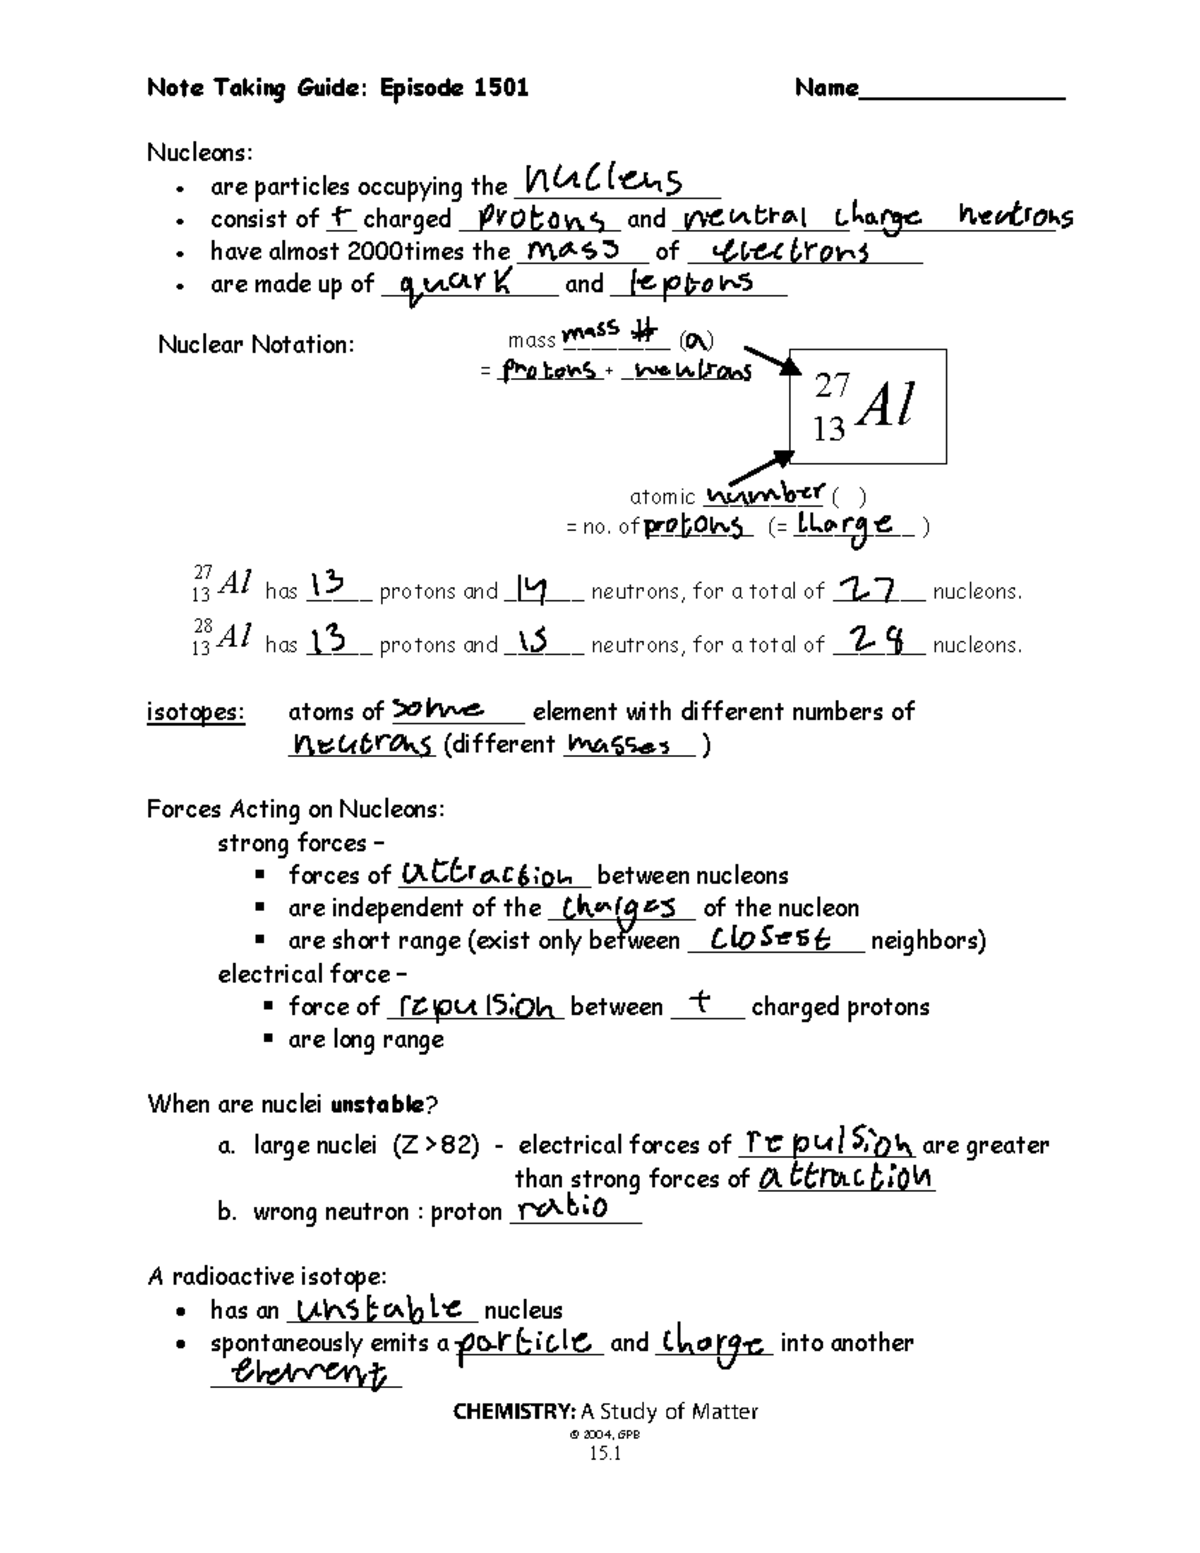 Note Taking Guide: Episode 1501 Name_______________
Nucleons:
• are particles occupying the nucleus
• consist of + charged protons and neutral charge neutrons
• have almost 2000times the mass of electrons
• are made up of quark and leptons
Nuclear Notation: mass mass # (a)
= protons + neutrons
27
13 Al
atomic number ( )
= no. of protons (= charge )
27
13 Al has 13 protons and 14 neutrons, for a total of 27 nucleons.
28
13 Al has 13 protons and 15 neutrons, for a total of 28 nucleons.
isotopes: atoms of some element with different numbers of
neutrons (different masses )
Forces Acting on Nucleons:
strong forces –
▪ forces of attraction between nucleons
▪ are independent of the charges of the nucleon
▪ are short range (exist only between closest neighbors)
electrical force –
▪ force of repulsion between + charged protons
▪ are long range
When are nuclei unstable?
a. large nuclei (Z >82) - electrical forces of repulsion are greater
than strong forces of attraction
b. wrong neutron : proton ratio
A radioactive isotope:
• has an unstable nucleus
• spontaneously emits a particle and charge into another
element
CHEMISTRY: A Study of Matter
© 2004, GPB
15.1